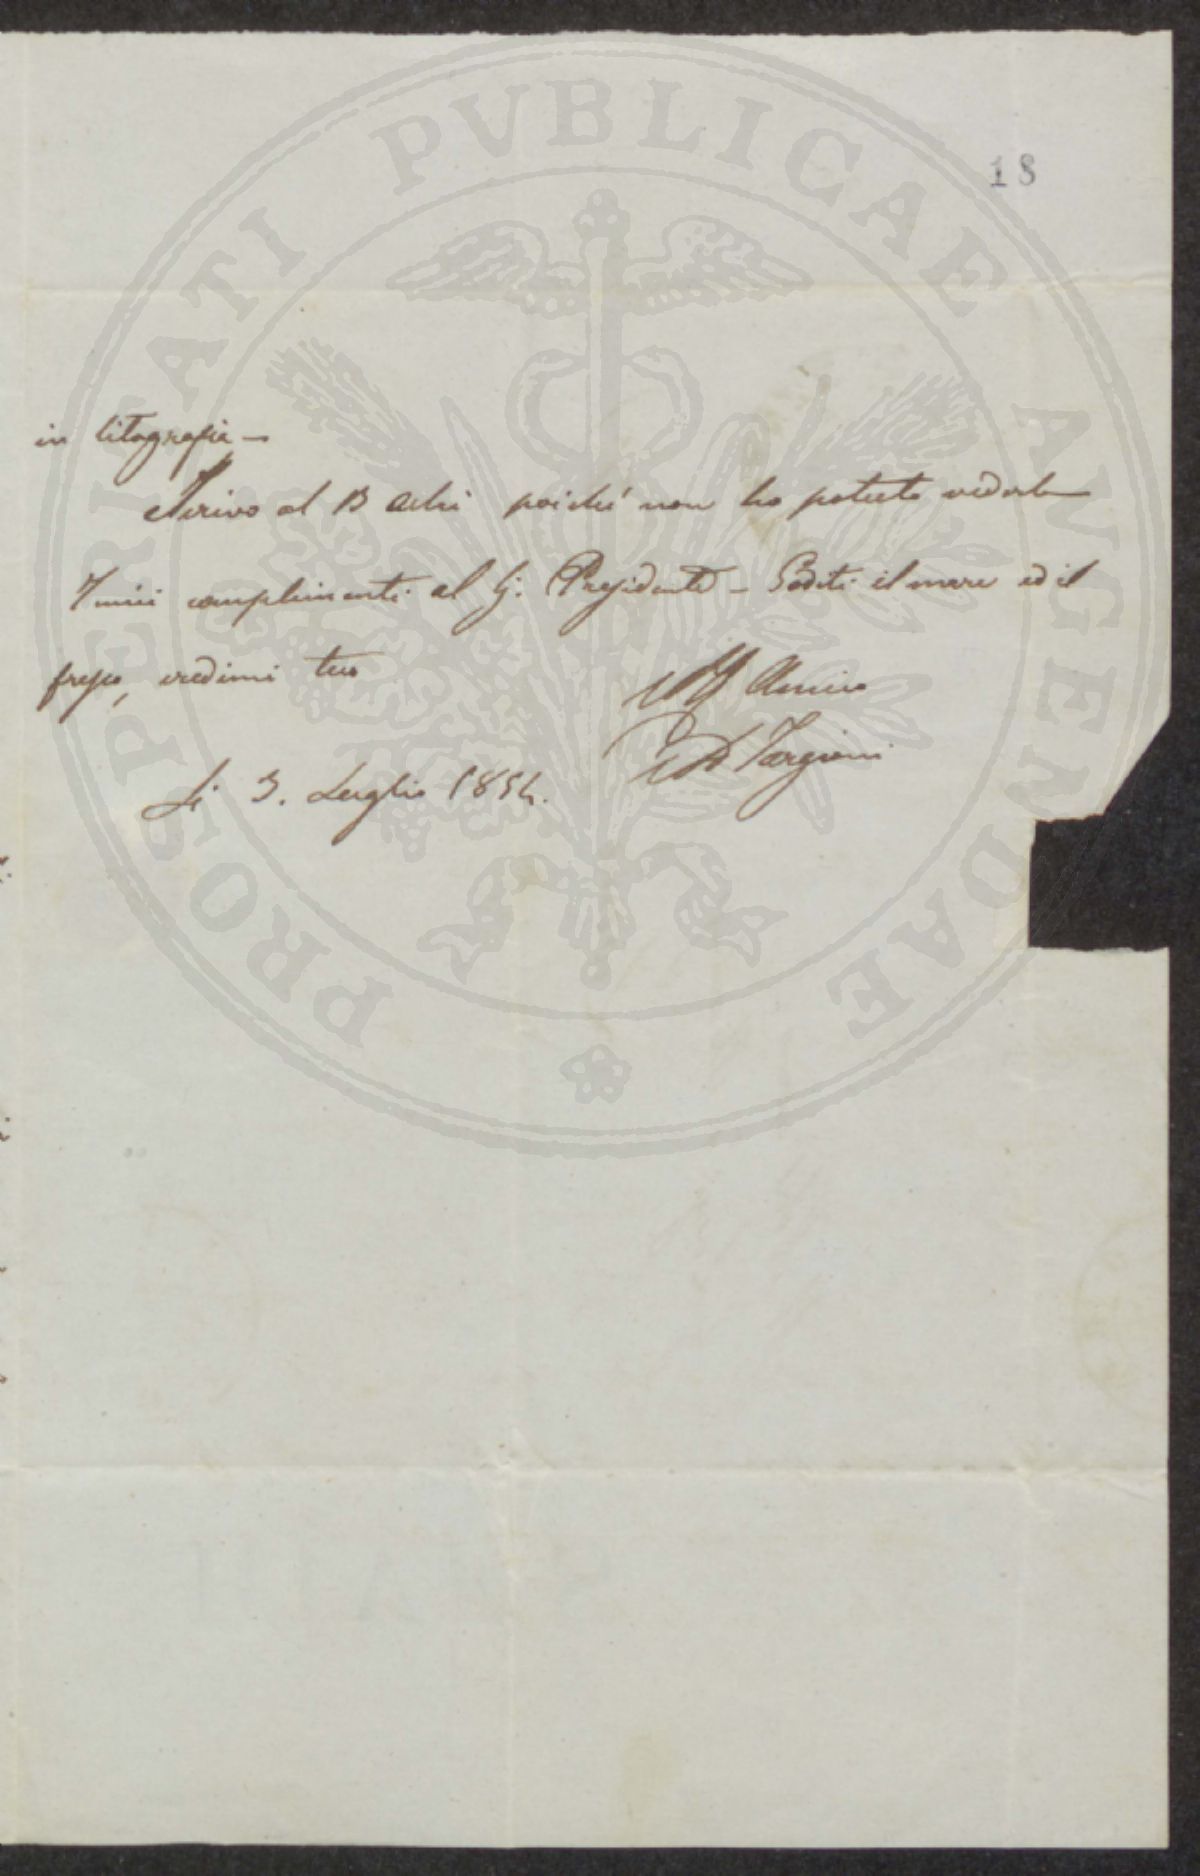 PROSPERITATI PUBLICAE AVGENDAE
18
in litografia –
Scrivo al B poiché non ho potuto vederlo
I miei complimenti al Presidente – Goditi il mare ed il
fresco, credimi tuo
Amico
Targioni
Li 3. Luglio 1854.